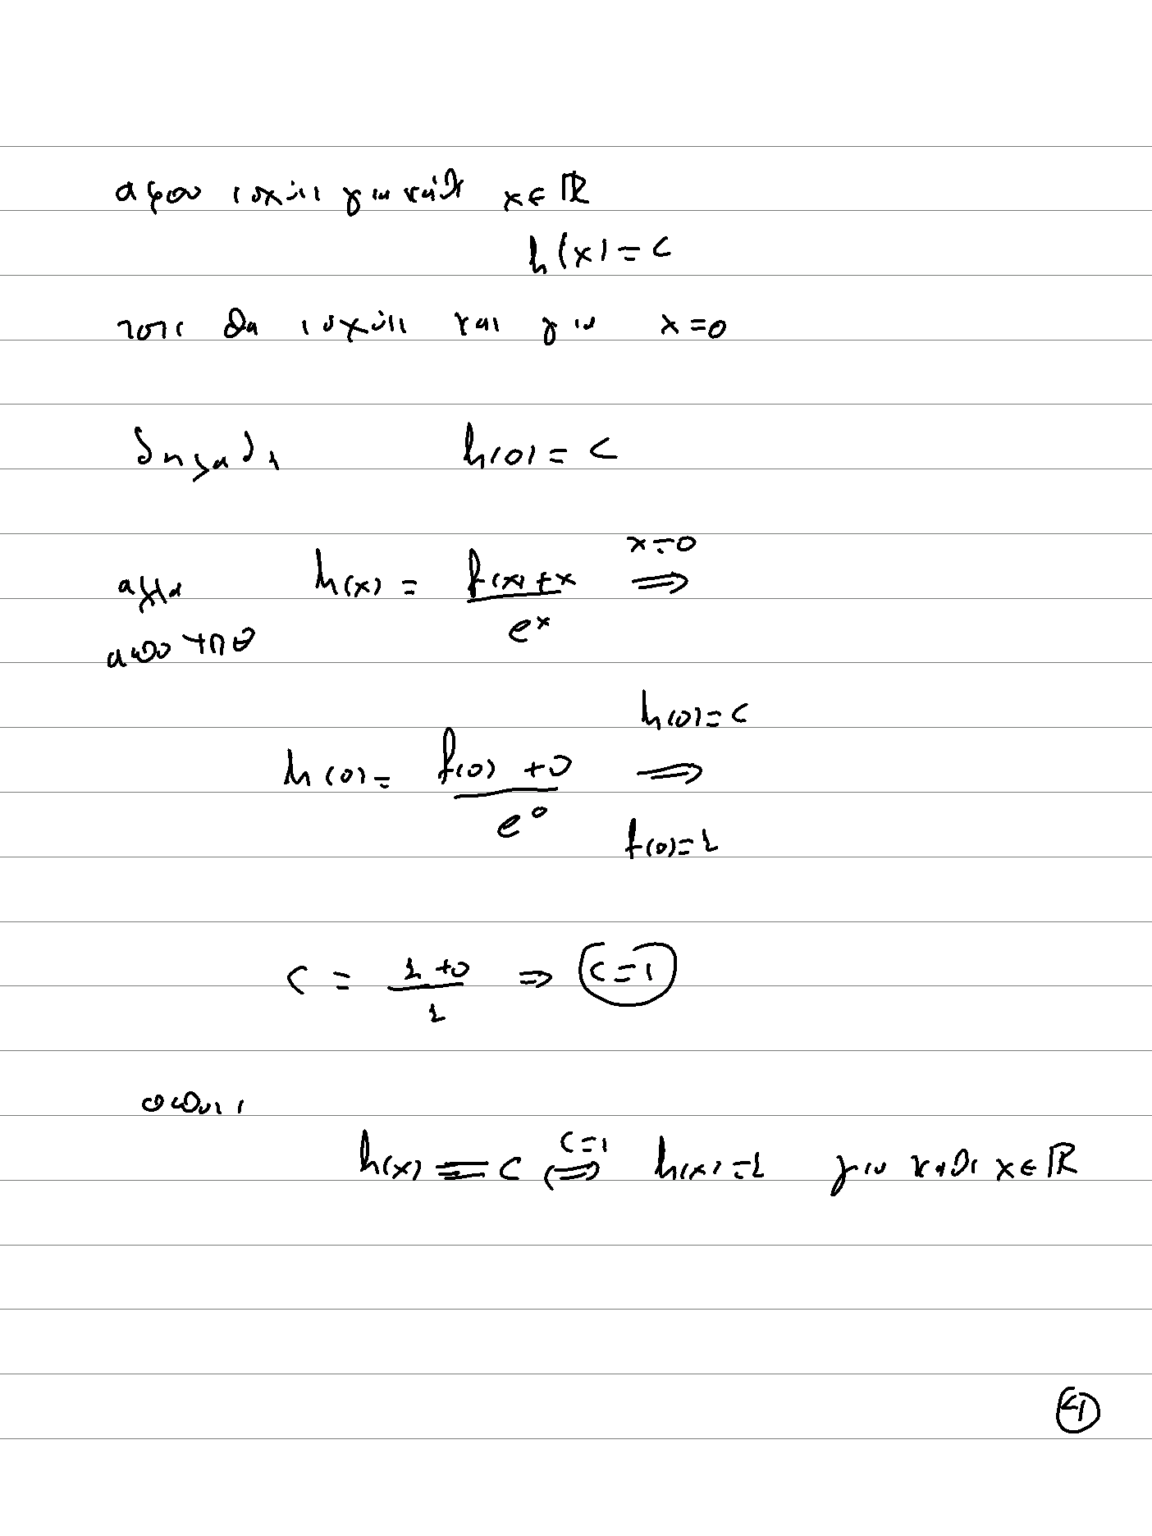 αφου ισχύει για κάθε x ∈ ℝ
h(x) = c
τοτε θα ισχύει και για x = 0
δηλαδη h(0) = c
αλλα h(x) = (f(x) + x) / e^x ⇒ (x = 0)
απο
h(0) = (f(0) + 0) / e^0 ⇒ (h(0) = c, f(0) = 1)
c = (1 + 0) / 1 ⇒ c = 1
οποτε
h(x) = c ⇔ (c = 1) h(x) = 1 για καθε x ∈ ℝ